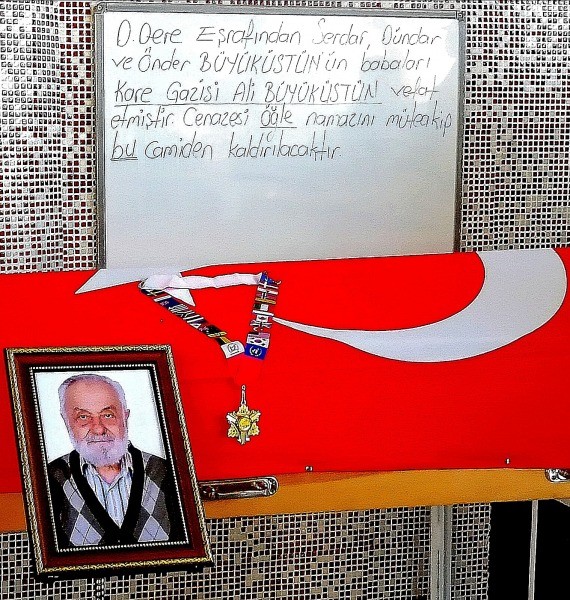 D. Dere Eşrafından Serdar, Dündar
ve Önder BÜYÜKÜSTÜN'ün babaları
Kore Gazisi Ali BÜYÜKÜSTÜN vefat
etmiştir. Cenazesi Öğle namazını müteakip
bu Camiden kaldırılacaktır.